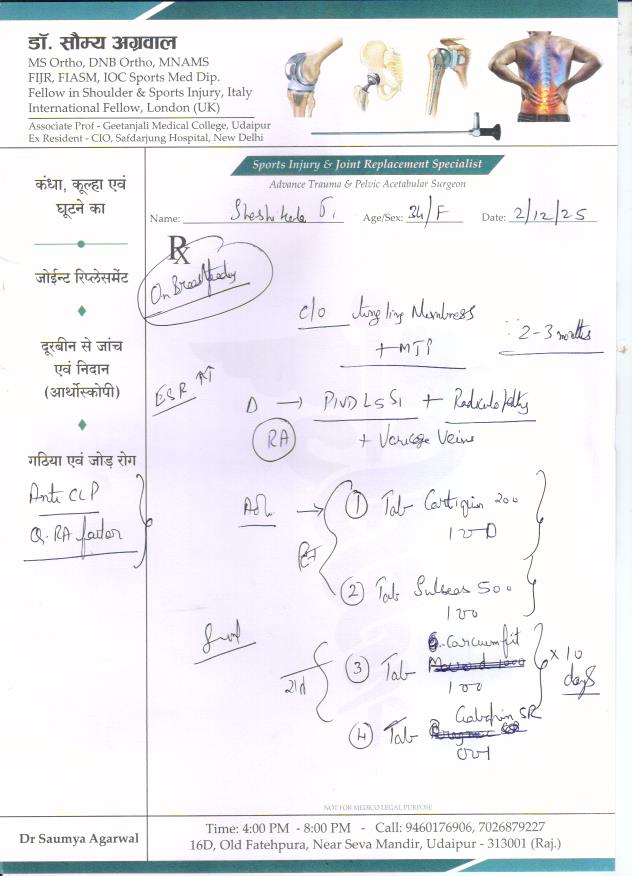 डॉ. सौम्य अग्रवाल
MS Ortho, DNB Ortho, MNAMS
FIJR, FIASM, IOC Sports Med Dip.
Fellow in Shoulder & Sports Injury, Italy
International Fellow, London (UK)
Associate Prof - Geetanjali Medical College, Udaipur
Ex Resident - CIO, Safdarjung Hospital, New Delhi
Sports Injury & Joint Replacement Specialist
Advance Trauma & Pelvic Acetabular Surgeon
Name: Age/Sex: 34/F Date: 2/12/25
Rx
कंधा, कूल्हा एवं
घूटने का
जोईन्ट रिप्लेसमेंट
दूरबीन से जांच
एवं निदान
(आर्थोस्कोपी)
गठिया एवं जोड़ रोग
Anti CCP
Q. RA factor
On Breastfeeding
C/o tingling Numbness
2-3 months
+ MTP
ESR ↑↑
D → PIVD L5S1 + Radiculopathy
RA
+ Varicose Veins
Adv. →
1 Tab Cartiquin 200
100
2 Tab 500
100
3 Tab
100
× 10
days
4 Tab Gabapin SR
001
NOT FOR MEDICO LEGAL PURPOSE
Dr Saumya Agarwal
Time: 4:00 PM - 8:00 PM - Call: 9460176906, 7026879227
16D, Old Fatehpura, Near Seva Mandir, Udaipur - 313001 (Raj.)